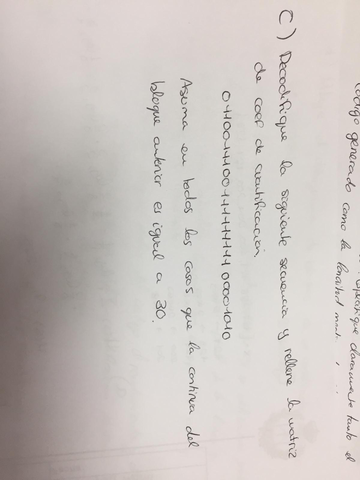 explique claramente tanto el
código generado como la longitud
C) Decodifique la siguiente secuencia y rellene la matriz
de coef de cuantificación
Asuma en todos los casos que la continua del
bloque anterior es igual a 30.